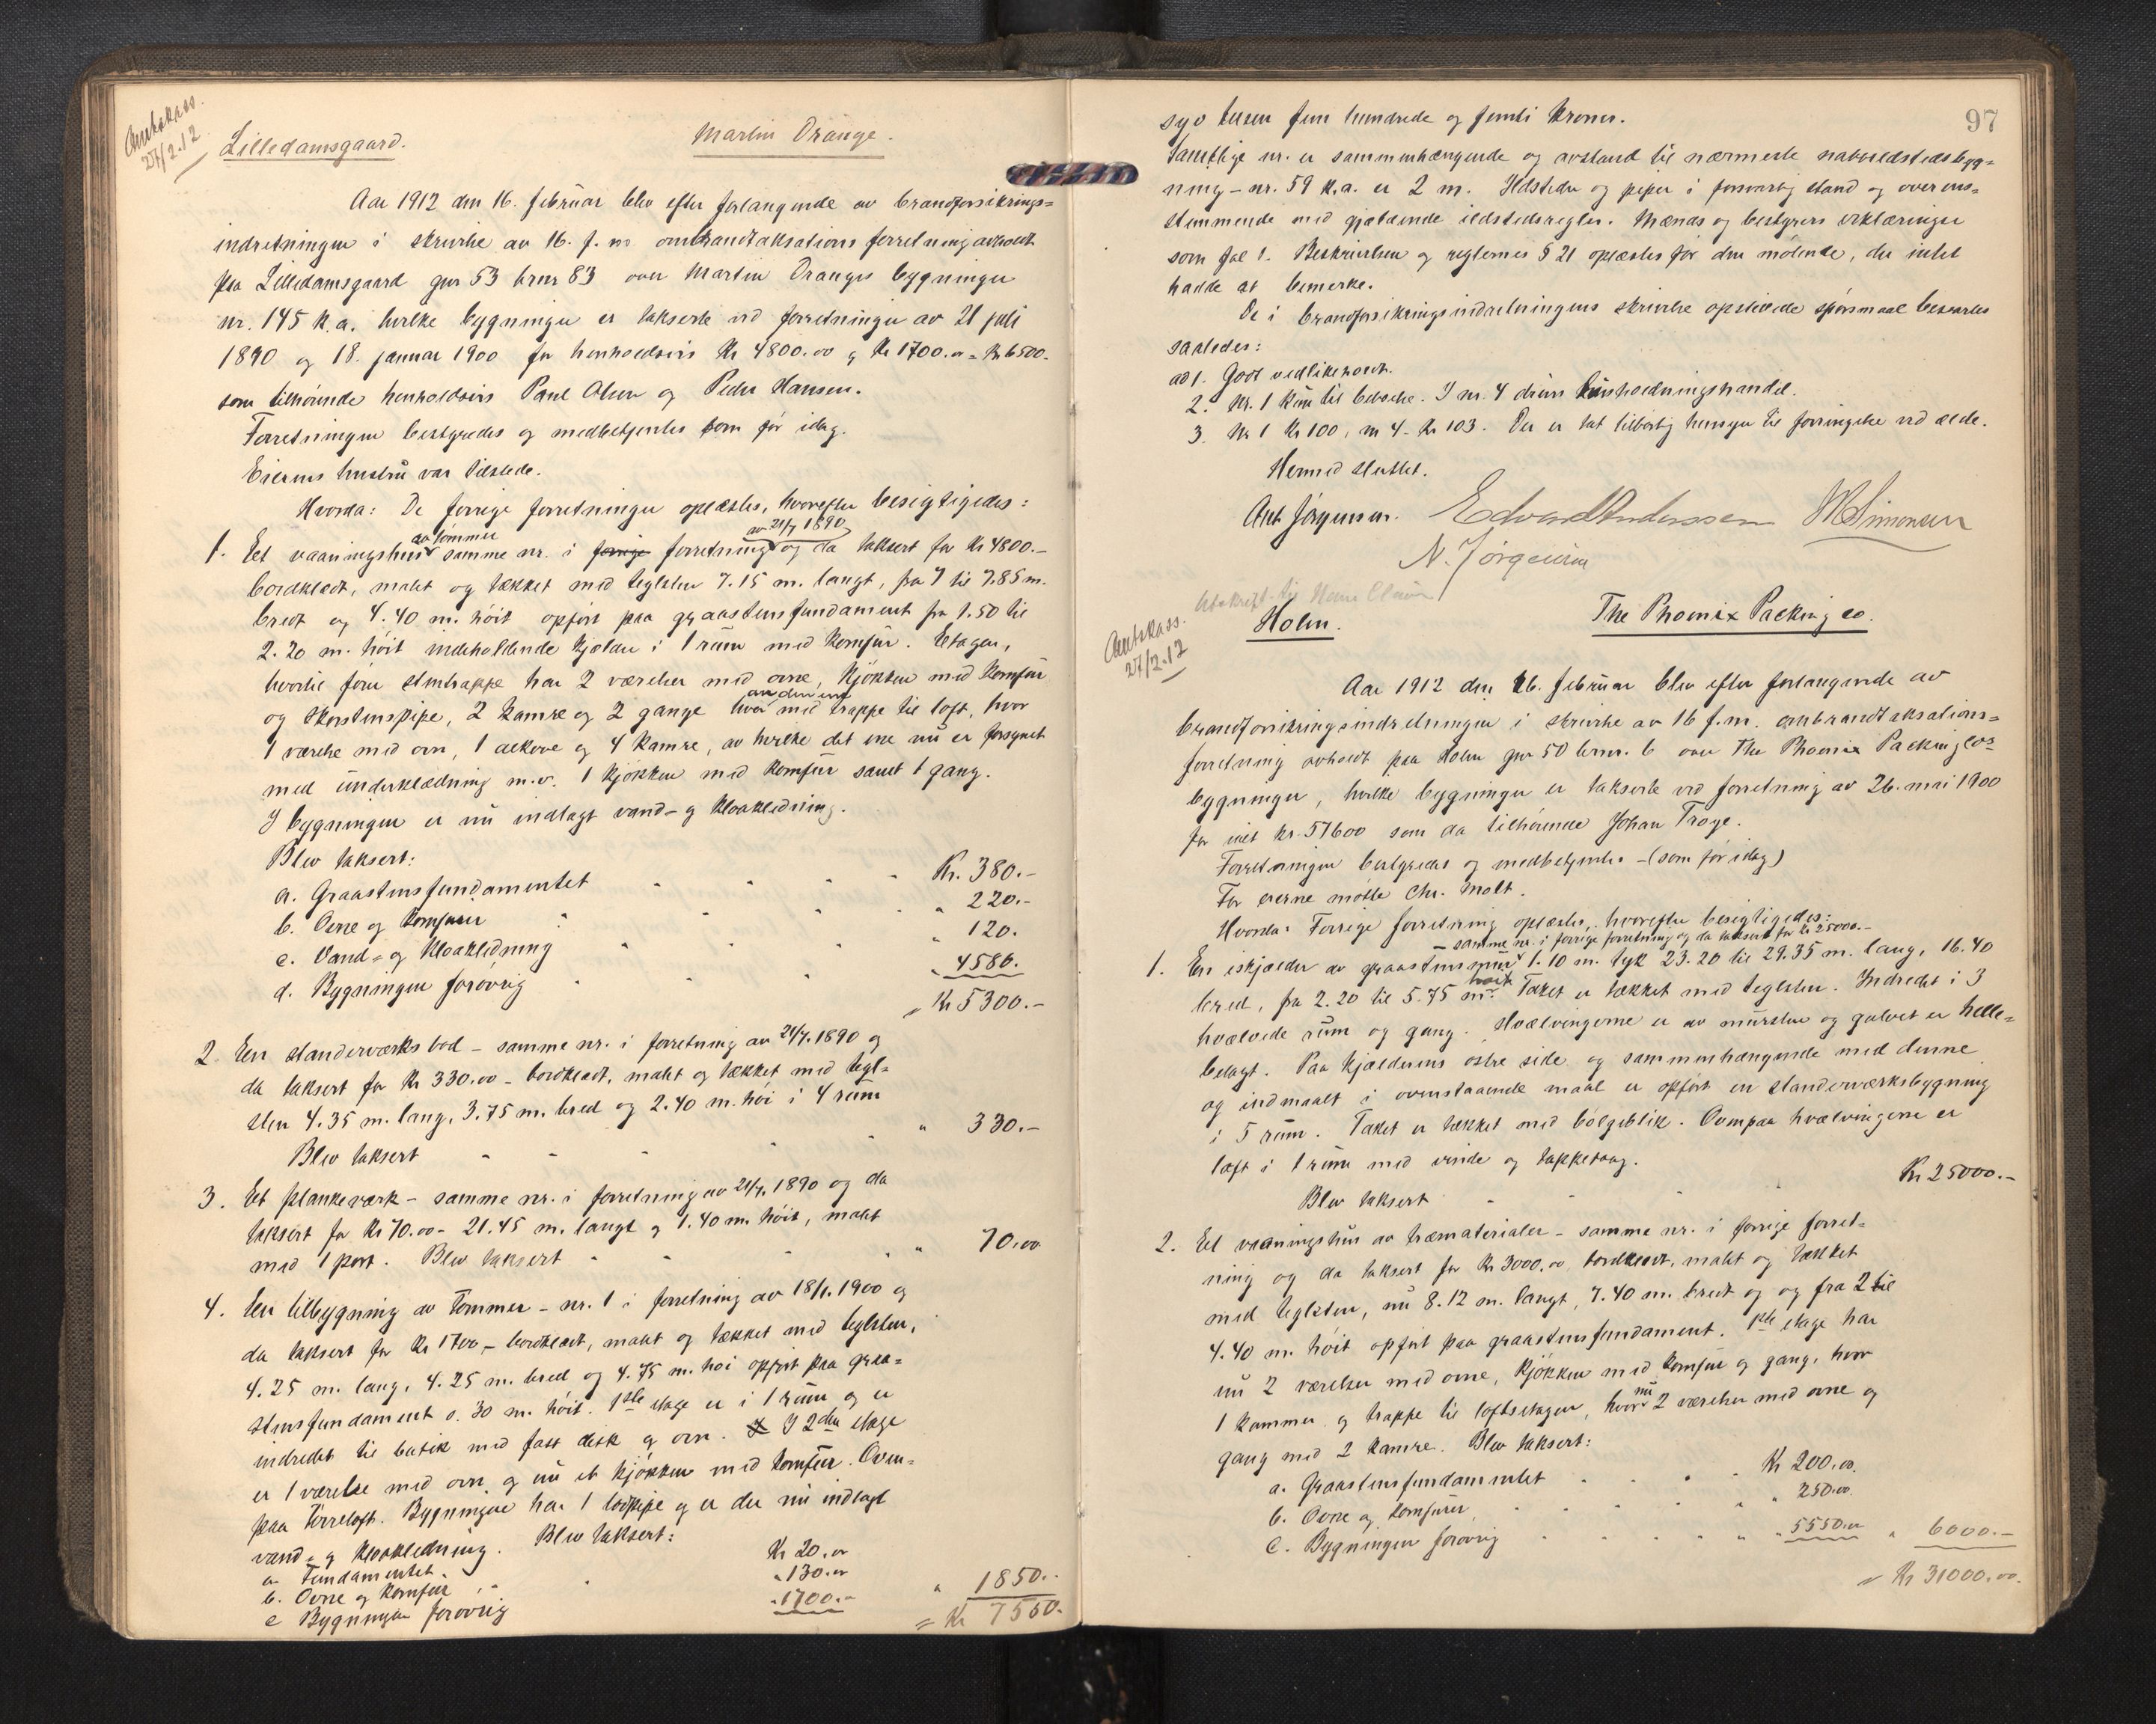 Amtskass.
27/2.12
Lilledamsgaard.
Martin Drange.
Aar 1912 den 16. februar blev efter forlangende av brandforsikrings=
indretningen i skrivelse av 16. f. m ombrandtaksationsforretning avholdt
paa Lilledamsgaard gnr 53 brnr 83 over Martin Dranges bygninger
nr. 145 k.a. hvilke bygninger er takserte ved forretninger av 21 juli
1890 og 18. januar 1900 for henholdsvis Kr 4800.00 og Kr 1700.00 = Kr 6500.
som tilhørende henholdsvis Paul Olsen og Peder Hansen.
Forretningen bestyredes og medbetjentes som før idag.
Eierens hustru var tilstede.
Hvorda: De forrige forretninger oplæstes, hvorefter besigtigedes:
1. Et vaaningshus av tømmer samme nr. i forrige forretning av 21/7 1890 og da taksert for Kr 4800.-
bordklædt, malet og tækket med teglsten 7.15 m. langt, fra 7 til 7.85 m.
bredt og 4.40 m. høit opført paa graastensfundament fra 1.50 til
2.20 m. høit indeholdende kjælder i 1 rum med komfur. Etagen,
hvortil fører stentrappe har 2 værelser med ovne, kjøkken med komfur
og skorstenspipe, 2 kamre og 2 gange hvor av den ene med trappe til loft, hvor
1 værelse med ovn, 1 alkove og 4 kamre, av hvilke det ene nu er forsynet
med underklædning m.v. 1 kjøkken med komfur samt 1 gang.
I bygningen er nu indlagt vand- og kloakledning.
Blev taksert:
a. Graastensfundamentet Kr. 380.-
b. Ovne og komfurer " 220.-
c. Vand- og kloakledning " 120.
d. Bygningen forøvrig " 4580.
= Kr 5300.-
2. En standerværks bod - samme nr. i forretning av 21/7 1890 og
da taksert for Kr 330.00 - bordklædt, malet og tækket med tegl=
sten 4.35 m. lang, 3.75 m. bred og 2.40 m. høi i 4 rum
Blev taksert " 330.-
3. Et plankeværk - samme nr. i forretning av 21/7 1890 og da
taksert for Kr 70.00 - 21.45 m. langt og 1.40 m. høit, malet
med 1 port. Blev taksert " 70.00
4. En tilbygning av tømmer - nr. 1 i forretning av 18/1 1900 og
da taksert for Kr 1700,- bordklædt, malet og tækket med teglsten,
4.25 m. lang, 4.25 m. bred og 4.75 m. høi opført paa graa=
stensfundament 0.30 m. høit. 1ste etage er i 1 rum og er
indredet til butik med fast disk og ovn. I 2den etage
er 1 værelse med ovn og nu et kjøkken med komfur. Oven=
paa tørreloft. Bygningen har 1 lodpipe og er der nu indlagt
vand- og kloakledning. Blev taksert:
a. Fundamentet Kr 20.00
b. Ovne og komfur " 130.00
c Bygningen forøvrig " 1700.- " 1850.-
= Kr 7550.
97
syv tusen fem hundrede og femti kroner.
Samtlige nr. er sammenhængende og avstand til nærmeste naboildstedsbyg=
ning - nr. 59 k.a. er 2 m. Ildsteder og piper i forsvarlig stand og overens=
stemmende med gjældende ildstedsregler. Mænds og bestyrers erklæringer
som fol 1. Beskrivelsen og reglernes § 21 oplæstes for den møtende, der intet
hadde at bemerke.
De i brandforsikringsindretningens skrivelse opstillede spørsmaal besvartes
saaledes:
ad 1. Godt vedlikeholdt.
2. Nr. 1 kun til beboelse. I nr. 4 drives husholdningshandel.
3. Nr 1 Kr 100, nr 4 - Kr 103. Der er tat tilbørlig hensyn til forringelse ved ælde.
Hermed sluttet.
Ant Jørgensen. Edvard Anderssen M Simonsen
N. Jørgensen
Utskrift til
Amtskass.
27/2.12
Holm.
The Phoenix Packing co.
Aar 1912 den 26. februar blev efter forlangende av
brandforsikringsindretningen i skrivelse av 16 f.m. ombrandtaksations=
forretning avholdt paa Holm gnr 50 brnr. 6 over The Phoenix Packing cos
bygninger, hvilke bygninger er takserte ved forretning av 26. mai 1900
for ialt kr. 57600 som da tilhørende Johan Troye.
Forretningen bestyredes og medbetjentes - (som før idag)
For eierne møtte Chr. Molt.
Hvorda: Forrige forretning oplæstes, hvorefter besigtigedes:
- samme nr. i forrige forretning og da taksert for Kr 25000.-
1. En iskjælder av graastensmur 1.10 m. tyk 23.20 til 29.35 m. lang, 16.40
bred, fra 2.20 til 5.75 m. høit Taket er tækket med teglsten. Indredet i 3
hvælvede rum og gang. Hvælvingerne er av mursten og gulvet er helle=
belagt. Paa kjælderens østre side og sammenhængende med denne
og indmaalt i ovenstaaende maal er opført en standerværksbygning
i 5 rum. Taket er tækket med bølgeblik. Ovenpaa hvælvingerne er
loft i 1 rum med vinde og takketaug.
Blev taksert Kr 25000.-
2. Et vaaningshus av træmaterialer - samme nr. i forrige forret=
ning og da taksert for Kr 3000.00 bordklædt, malet og tækket
med teglsten, nu 8.12 m. langt, 7.40 m. bredt og og fra 2 til
4.40 m. høit opført paa graastensfundament. 1ste etage har
nu 2 værelser med ovne, kjøkken med komfur og gang, hvor
1 kammer og trappe til loftsetagen, hvor nu 2 værelser med ovne og
gang med 2 kamre. Blev taksert:
a. Graastensfundamentet Kr 200.00.
b. Ovne og komfurer " 250.00
c. Bygningen forøvrig " 5550.00 " 6000.-
= Kr 31000.00.